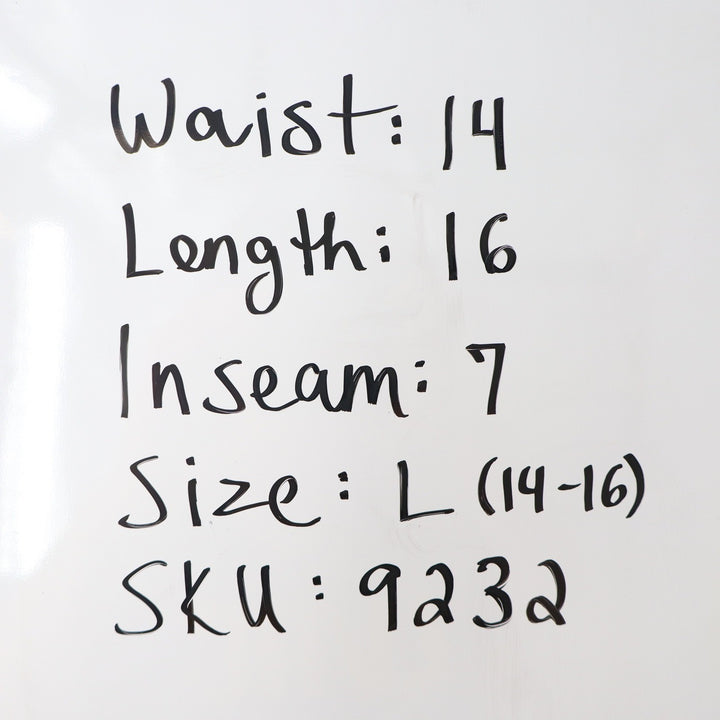 Waist: 14
Length: 16
Inseam: 7
Size: L (14-16)
SKU: 9232